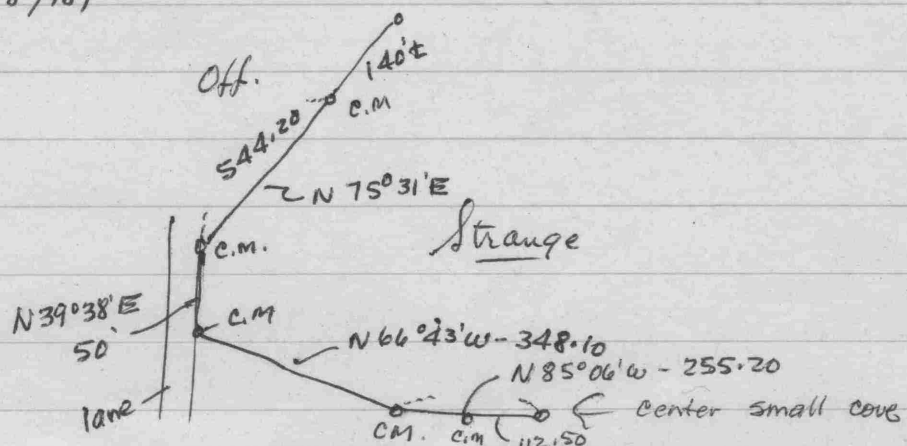 Off.
140'±
C.M
544.20
N 75°31'E
C.M.
Strange
N 39°38'E
50'
C.M
N 66°43'W - 348.10
N 85°06'W - 255.20
lane
CM.
C.M
112.50
center small cove